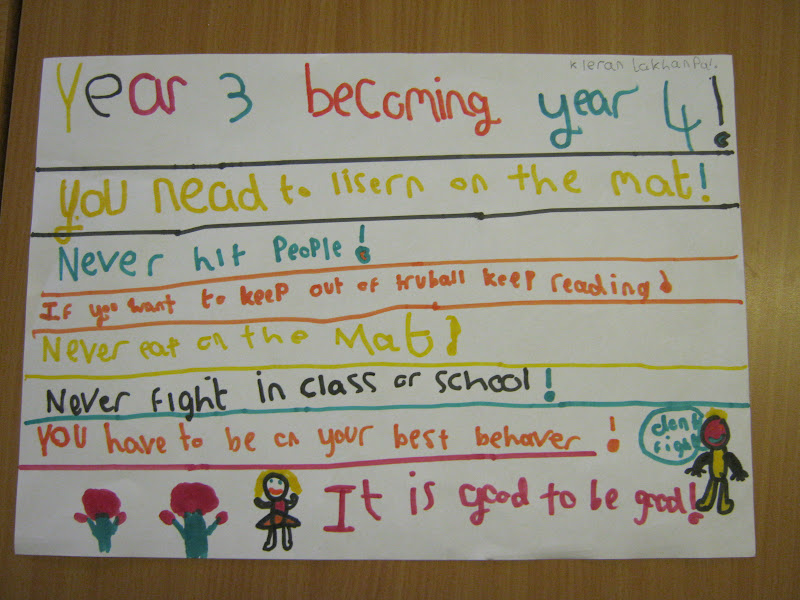 Kieran Lakhanpal.
Year 3 becoming year 4!
You nead to lisern on the mat!
Never hit People!
If you want to keep out of truball keep reading!
Never eat on the Mat!
Never fight in class or school!
You have to be on your best behaver!
dont fight
It is good to be good!